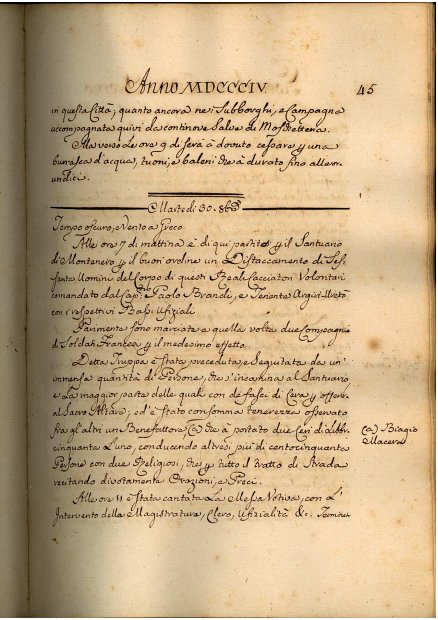 Anno MDCCCIV
45
in questa Città; quanto ancora nei Subborghi, e Campagna
accompagnata quivi da continove Salve di Moschetteria.
Ma verso le ore 9 di sera à dovuto cessare p una
burrasca d'acqua, tuoni, e baleni che à durato fino alle
undici.
Martedi 30.
Tempo oscuro, e Vento a Greco.
Alle ore 7 di mattina è di qui partito p il Santuario
di Montenero p il buon ordine un Distaccamento di Ses,,
santa Uomini del Corpo di questi Real Cacciatori Volontari
comandato dal Capno Paolo Brandi, e Tenente
con i respettivi Bassi Ufiziali
Parimente sono marciate a quella volta due Compagnie
di Soldati Francesi p il medesimo effetto.
Detta Truppa è stata preceduta e Seguitata da un'
immensa quantità di Persone, che s'incamina al Santuario
e La maggior parte delle quali con de fasci di Cera p offerire
al Sacro Altare, ed è stato con somma tenerezza osservato
fra gli altri un Benefattore (a) che à portato due Ceri di Libbre
cinquanta L'uno, conducendo altresì più di centocinquanta
Persone con due Religiosi, che p tutto il tratto di Strada
recitando divotamente Orazioni, e Preci.
(a) Biagio
Alle ore 11 è stata cantata La Messa Votiva, con L'
Intervento della Magistratura, Clero, Ufizialità &c.